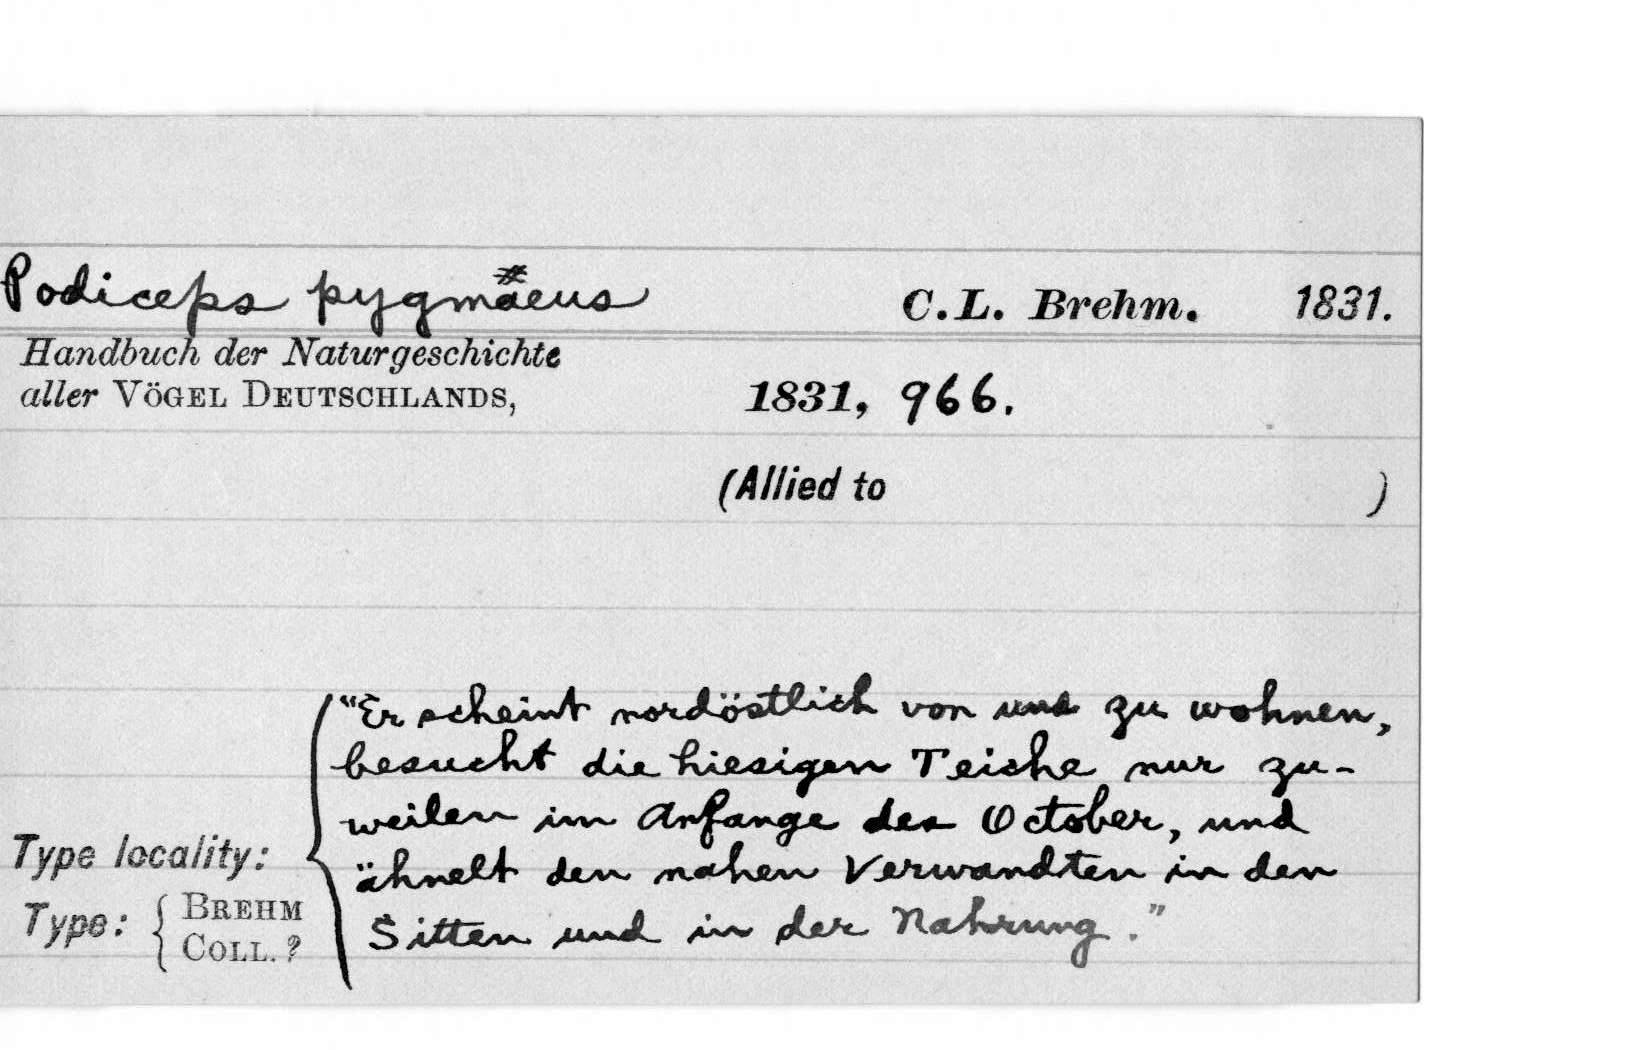 Podiceps pygmaeus C.L. Brehm. 1831.
Handbuch der Naturgeschichte
aller VÖGEL DEUTSCHLANDS, 1831, 966.
(Allied to )
"Er scheint nordöstlich von uns zu wohnen,
besucht die hiesigen Teiche nur zu-
weilen im Anfange des October, und
Type locality: ähnelt den nahen Verwandten in den
Type: { BREHM COLL. ? Sitten und in der Nahrung."